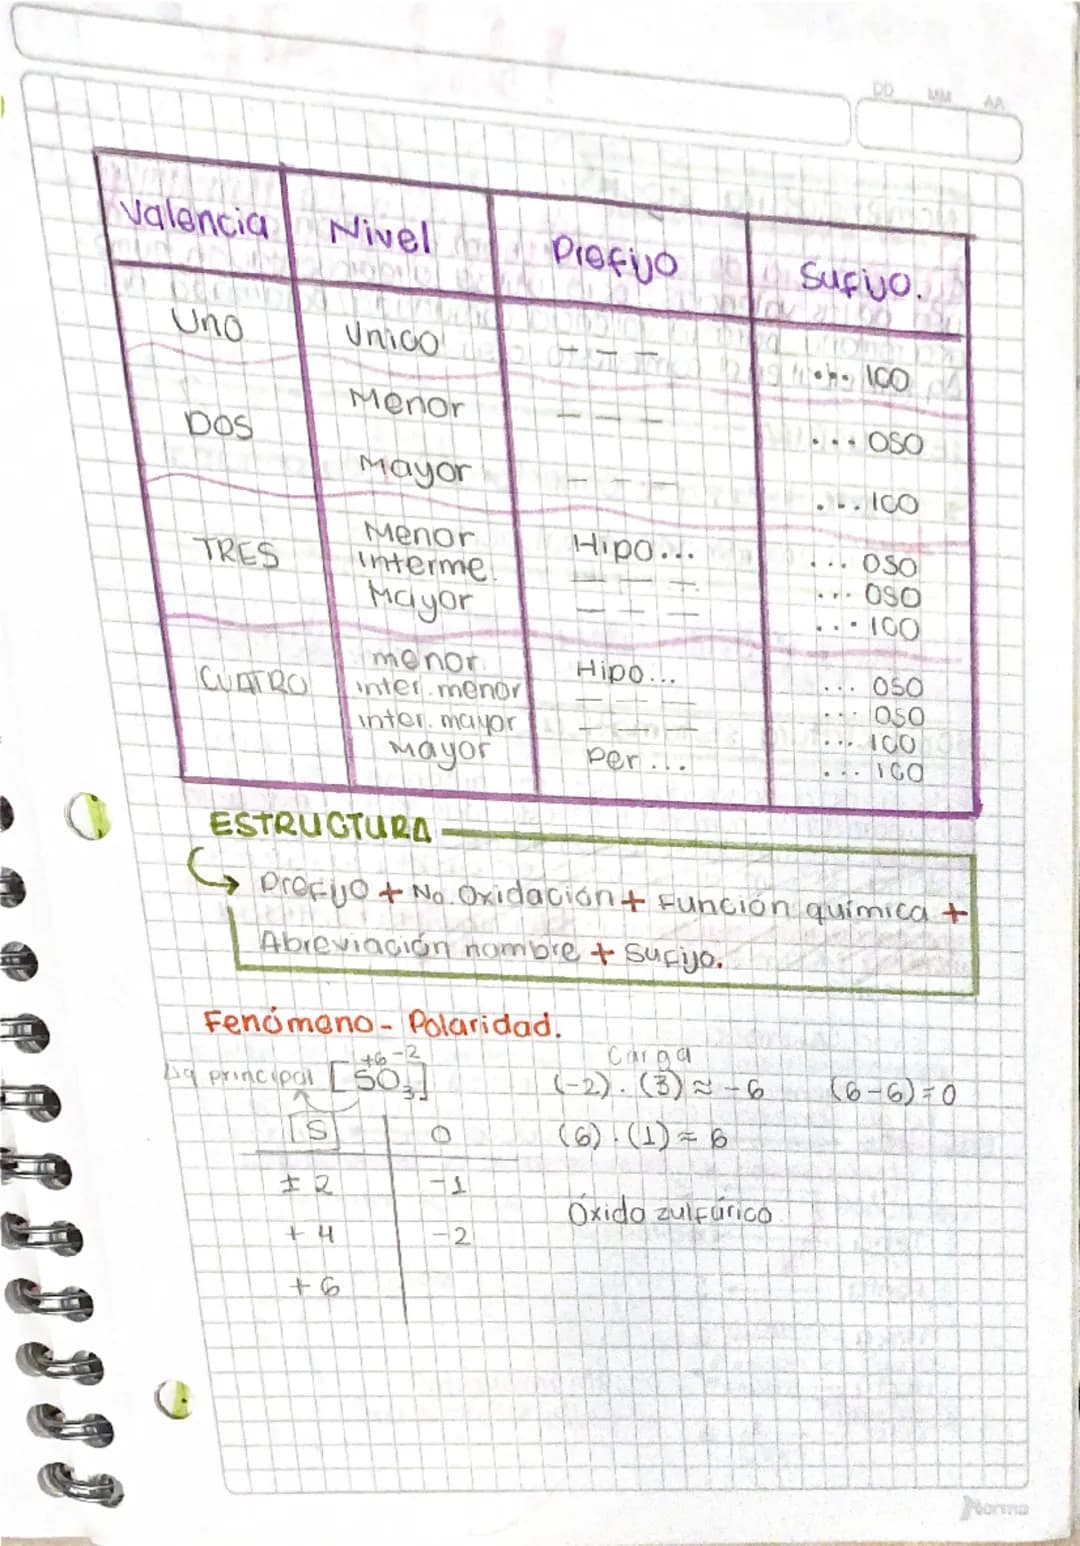 DD MM AA
Valencia Nivel Prefijo Sufijo.
Uno Unico - - - ... ICO
DOS Menor - - - ... OSO
Mayor - - - ... ICO
TRES Menor Hipo... ... OSO
interme. - - - ... OSO
Mayor - - - ... ICO
CUATRO menor Hipo... ... OSO
inter. menor - - - ... OSO
inter. mayor - - - ... ICO
Mayor Per... ... ICO
ESTRUCTURA
Prefijo + No. Oxidación + Función química +
Abreviación nombre + Sufijo.
Fenómeno - Polaridad.
+6 -2 Carga
principal [SO3] (-2).(3) ≈ -6 (6-6)=0
[S] O (6).(1) ≈ 6
± 2 -1
Óxido zulfúrico
+ 4 -2
+ 6
Norma